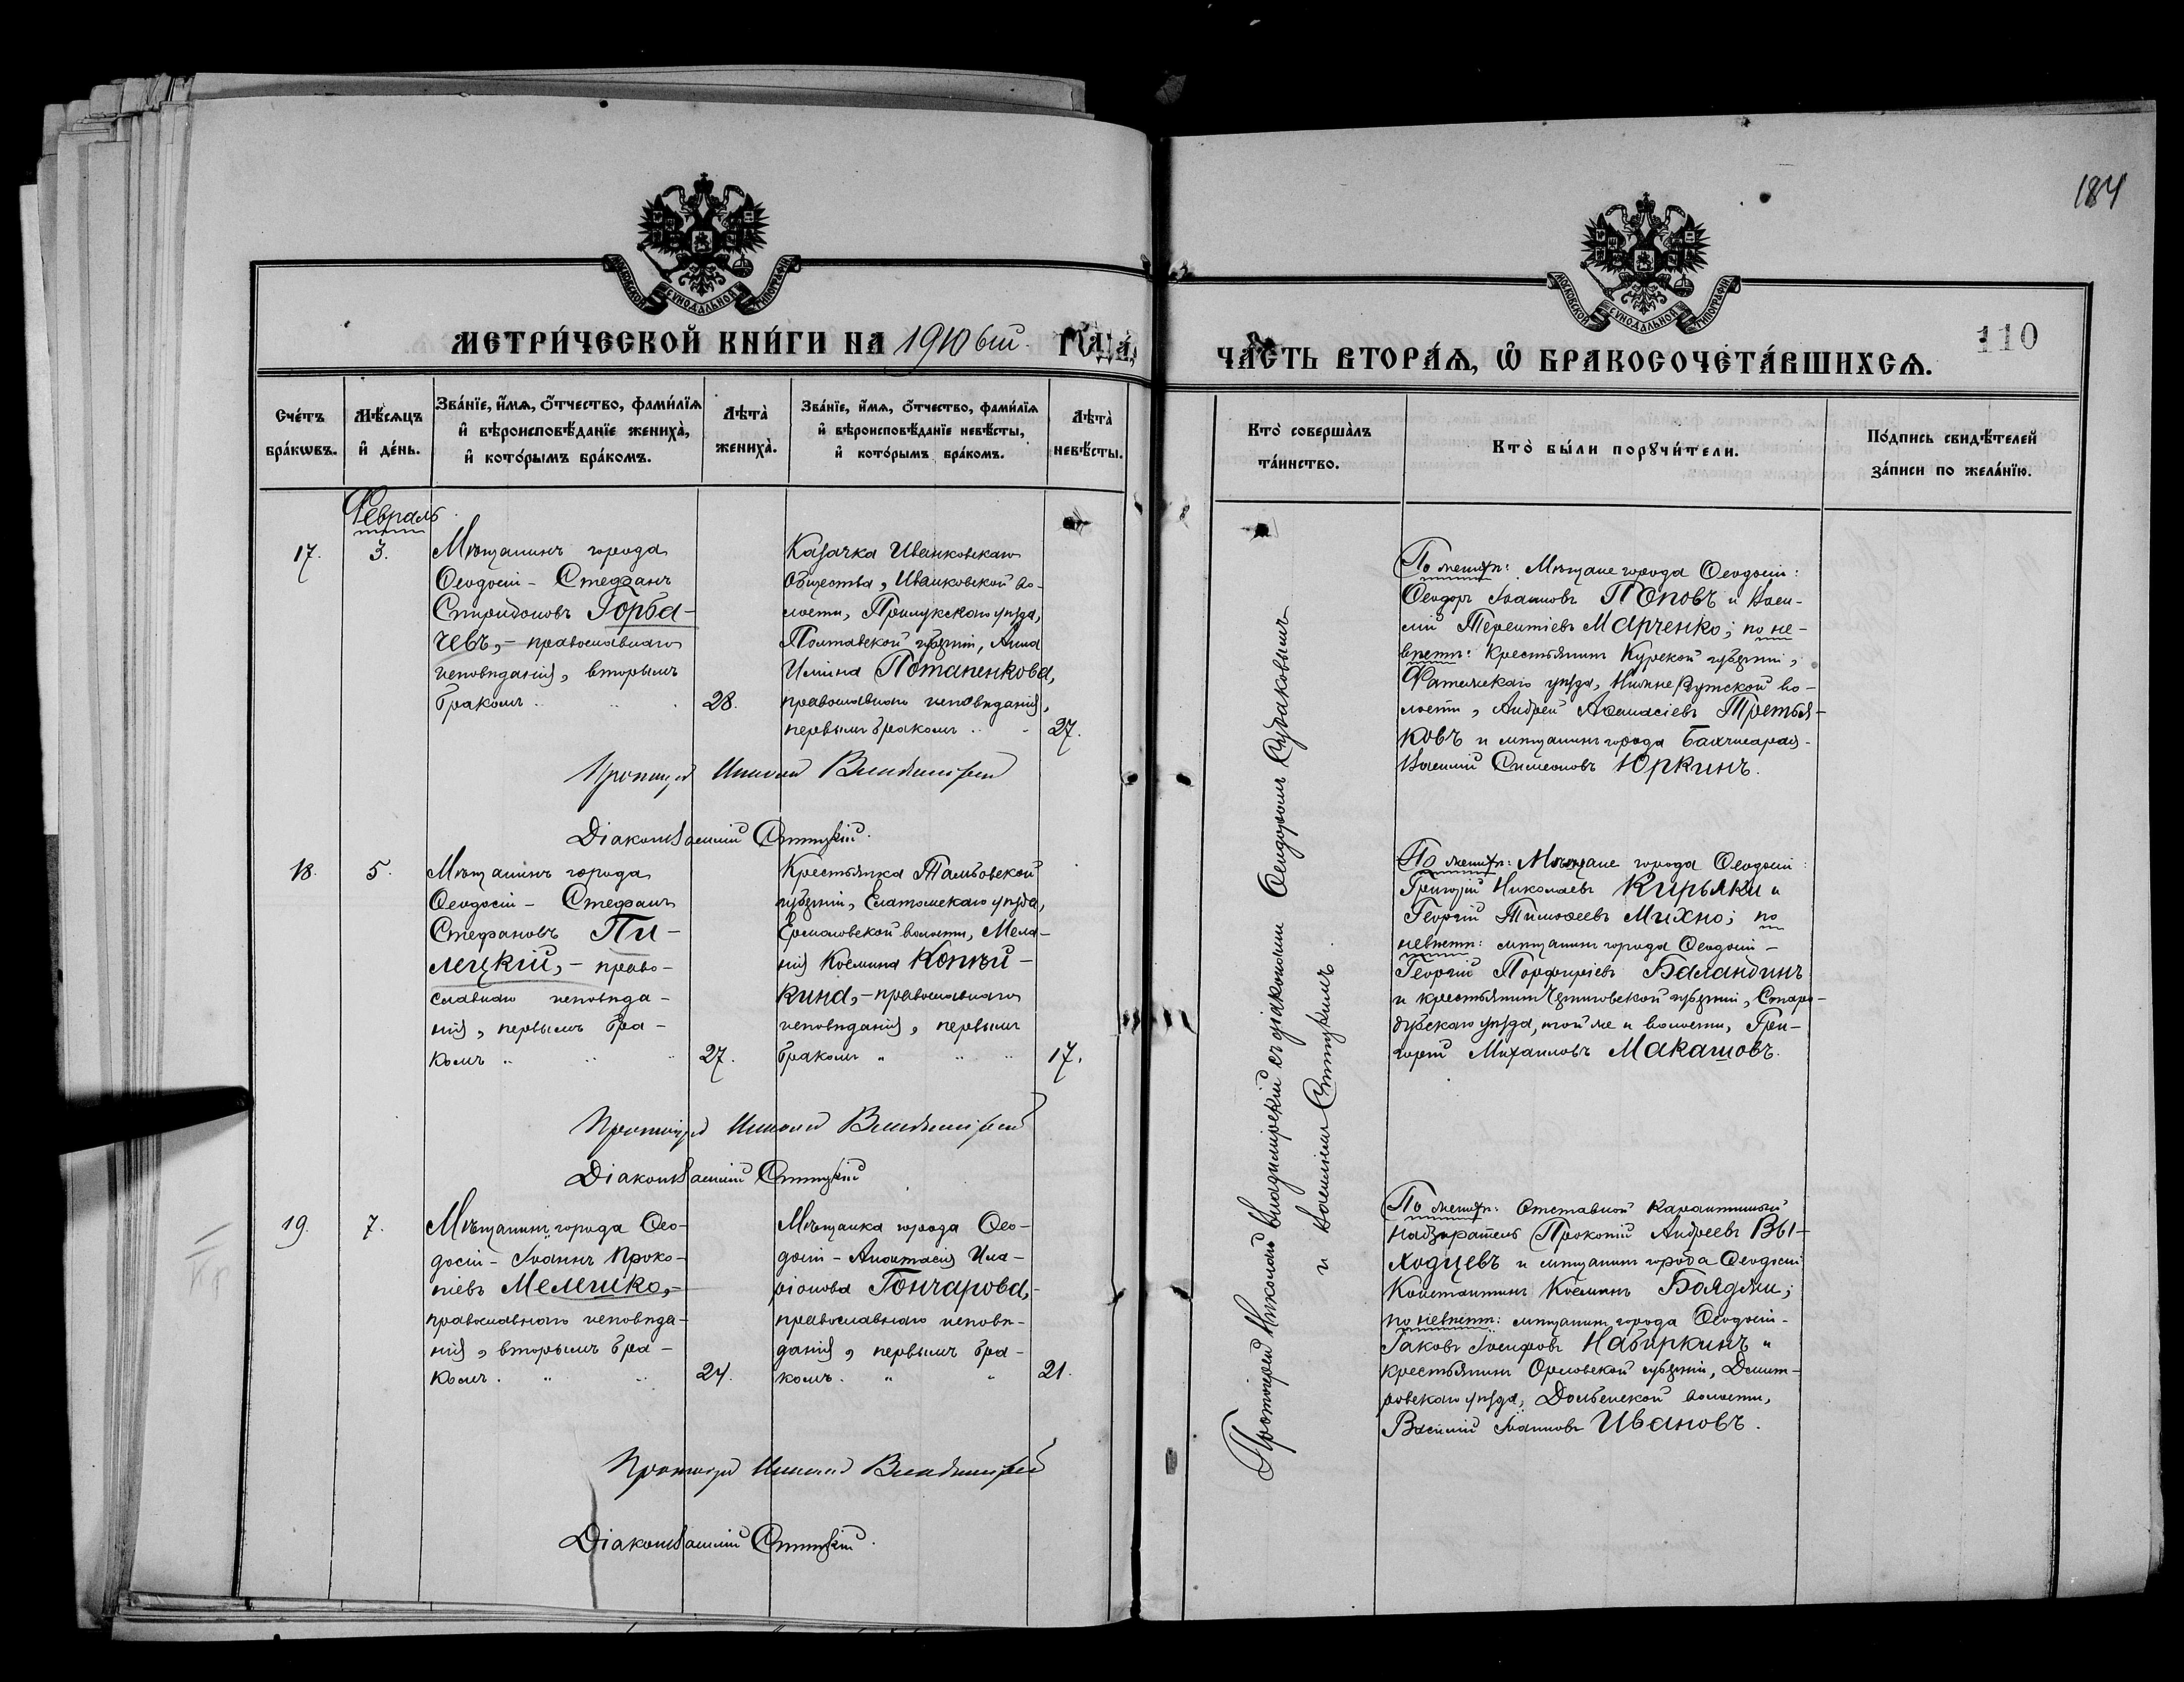 184
МОСКОВСКОЙ СУНОДАЛЬНОЙ ТИПОГРАФІИ
МОСКОВСКОЙ СУНОДАЛЬНОЙ ТИПОГРАФІИ
МЕТРИ́ЧЕСКОЙ КНИ́ГИ НА 1910 ый ГОДА̀,
110
ЧА́СТЬ ВТОРА́Ѧ, Ѽ БРАКОСОЧЕТА́ВШИХСѦ.
Сче́тъ бра́кωвъ.
Мѣ́сѧцъ и҆ де́нь.
Зва́нїе, и҆́мѧ, ѻ҆́тчество, фами́лїѧ
и҆ вѣроисповѣ́данїе жениха̀,
и҆ кото́рымъ бра́комъ.
Лѣта̀ жениха̀.
Зва́нїе, и҆́мѧ, ѻ҆́тчество, фами́лїѧ
и҆ вѣроисповѣ́данїе невѣ́сты,
и҆ кото́рымъ бра́комъ.
Лѣта̀ невѣ́сты.
Кто̀ соверша́лъ
та́инство.
Кто̀ бы́ли порꙋчи́тели.
По́дпись свидѣ́телей
за́писи по жела́нїю.
Февраль
17.
3.
Мѣщанинъ города
Ѳеодосіи - Стефанъ
Спиридоновъ Горба-
чевъ, - православнаго
исповѣданія, вторымъ
бракомъ
28.
Казачка Иванковскаго
общества, Иванковской во-
лости, Прилукскаго уѣзда,
Полтавской губерніи, Анна
Ильина Потапенкова,
православнаго исповѣданія,
первымъ бракомъ
27.
Протоіерей Николай Владимірскій
Діаконъ Василій
По женихѣ: Мѣщане города Ѳеодосіи:
Ѳеодоръ Іоанновъ Поповъ и Васи-
лій Терентіевъ Марченко; по не-
вѣстѣ: крестьянинъ Курской губерніи,
Фатежскаго уѣзда, Нижнереутской во-
лости, Андрей Аѳанасіевъ Третья-
ковъ и мѣщанинъ города Бахчисарая -
Василій Симеоновъ Юркинъ.
18.
5.
Мѣщанинъ города
Ѳеодосіи - Стефанъ
Стефановъ Пи-
лецкій, - право-
славнаго исповѣда-
нія, первымъ бра-
комъ
27.
Крестьянка Тамбовской
губерніи, Елатомскаго уѣзда,
Ермоловской волости, Мела-
нія Косьмина Копѣй-
кина, - православнаго
исповѣданія, первымъ
бракомъ
17.
Протоіерей Николай Владимірскій
Діаконъ Василій
По женихѣ: Мѣщане города Ѳеодосіи:
Григорій Николаевъ Кирьяки и
Георгій Тимоѳеевъ Михно; по
невѣстѣ: мѣщанинъ города Ѳеодосіи -
Георгій Порфиріевъ Баландинъ
и крестьянинъ Черниговской губерніи, Старо-
дубскаго уѣзда, той же и волости, Гри-
горій Михаиловъ Макашовъ.
19.
7.
Мѣщанинъ города Ѳео-
досіи - Іоаннъ Проко-
піевъ Мелешко, -
православнаго исповѣда-
нія, вторымъ бра-
комъ.
24.
Мѣщанка города Ѳео-
досіи - Анастасія Ила-
ріонова Гончарова, -
православнаго исповѣ-
данія, первымъ бра-
комъ.
21.
Протоіерей Николай Владимірскій
Діаконъ Василій
По женихѣ: Отставной карантинный
надзиратель Прокопій Андреевъ Вы-
ходцевъ и мѣщанинъ города Ѳеодосіи
Константинъ Косьминъ Бояджи;
по невѣстѣ: мѣщанинъ города Ѳеодосіи -
Іаковъ Іосифовъ Набиркинъ и
крестьянинъ Орловской губерніи, Дмит-
ровскаго уѣзда, Долбенской волости,
Василій Іоанновъ Ивановъ.
Протоіерей Николай Владимірскій съ діаконами Ѳеодоромъ Судаковымъ
и Василіемъ